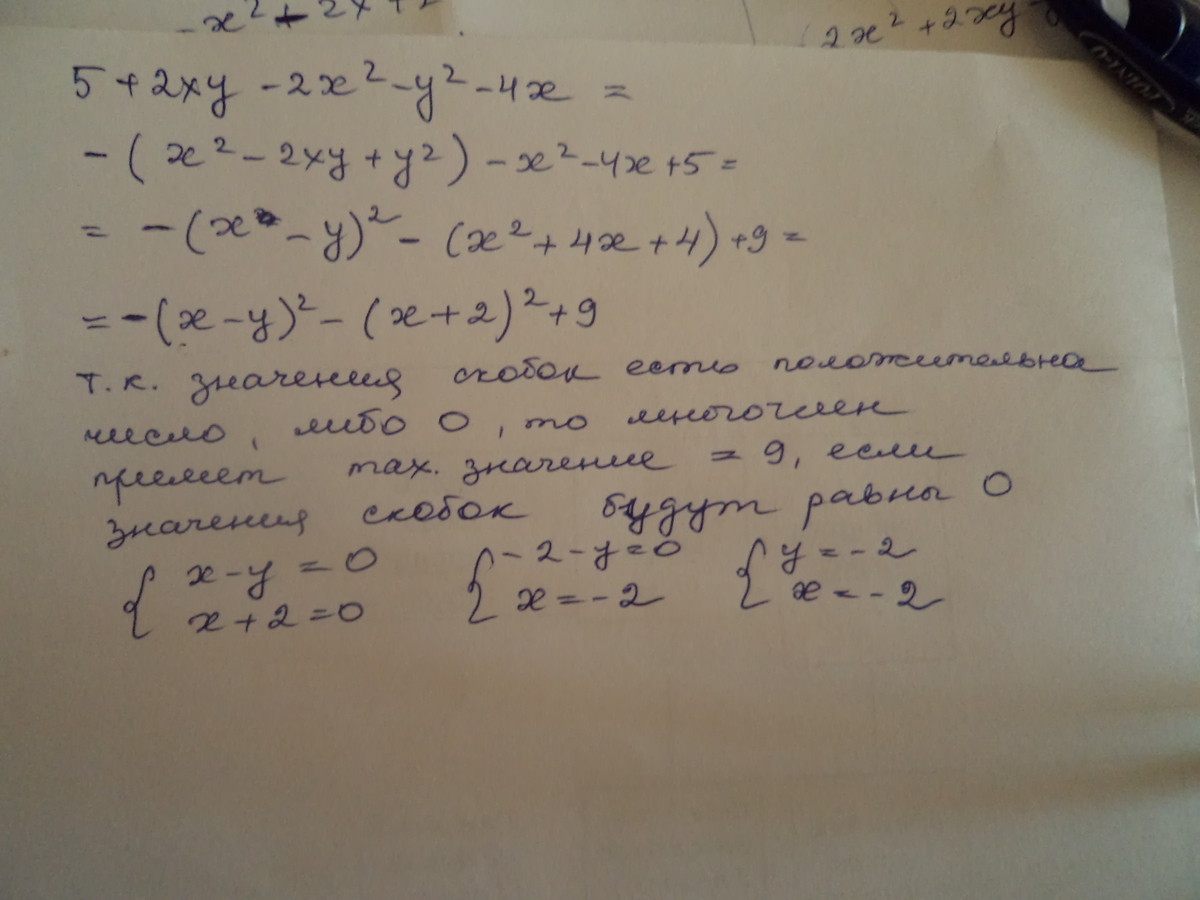 -x² + 2x +
2x² + 2xy
5 + 2xy - 2x² - y² - 4x =
- ( x² - 2xy + y² ) - x² - 4x + 5 =
= - (x - y)² - (x² + 4x + 4) + 9 =
= - (x - y)² - (x + 2)² + 9
т.к. значения скобок есть положительна
число, либо 0, то многочлен
примет max. значение = 9, если
значения скобок будут равны 0
{ x - y = 0 { - 2 - y = 0 { y = - 2
x + 2 = 0 x = - 2 x = - 2